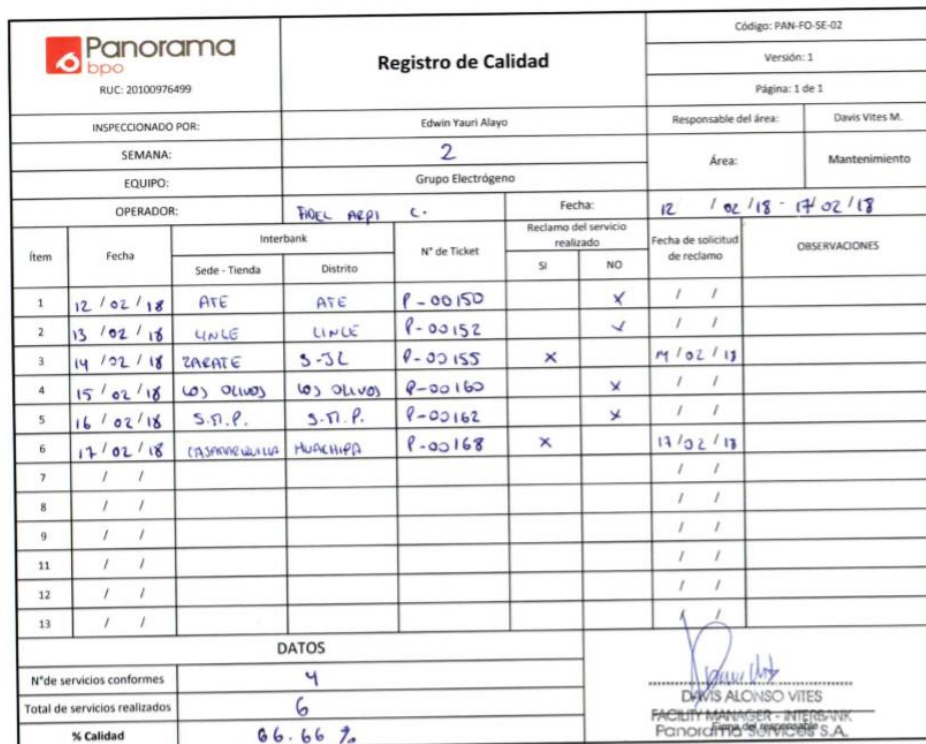 Panorama
bpo
RUC: 20100976499
Registro de Calidad
Código: PAN-FO-SE-02
Versión: 1
Página: 1 de 1
INSPECCIONADO POR: Edwin Yauri Alayo Responsable del área: Davis Vites M.
SEMANA: 2 Área: Mantenimiento
EQUIPO: Grupo Electrógeno
OPERADOR: FIDEL ARPI C. Fecha: 12 / 02 / 18 - 17/ 02 / 18
Ítem Fecha Interbank N° de Ticket Reclamo del servicio realizado Fecha de solicitud de reclamo OBSERVACIONES
Sede - Tienda Distrito SI NO
1 12 / 02 / 18 ATE ATE P-00150 X / /
2 13 / 02 / 18 LINCE LINCE P-00152 X / /
3 14 / 02 / 18 ZARATE S-JL P-00155 X 14 / 02 / 18
4 15 / 02 / 18 LOS OLIVOS LOS OLIVOS P-00160 X / /
5 16 / 02 / 18 S.M.P. S.M.P. P-00162 X / /
6 17 / 02 / 18 HUACHIPA P-00168 X 17 / 02 / 18
7 / / / /
8 / / / /
9 / / / /
11 / / / /
12 / / / /
13 / / / /
DATOS
N°de servicios conformes 4
Total de servicios realizados 6
% Calidad 66.66 %
DAVIS ALONSO VITES
FACILITY MANAGER - INTERBANK
Firma del responsable
Panorama Servicios S.A.